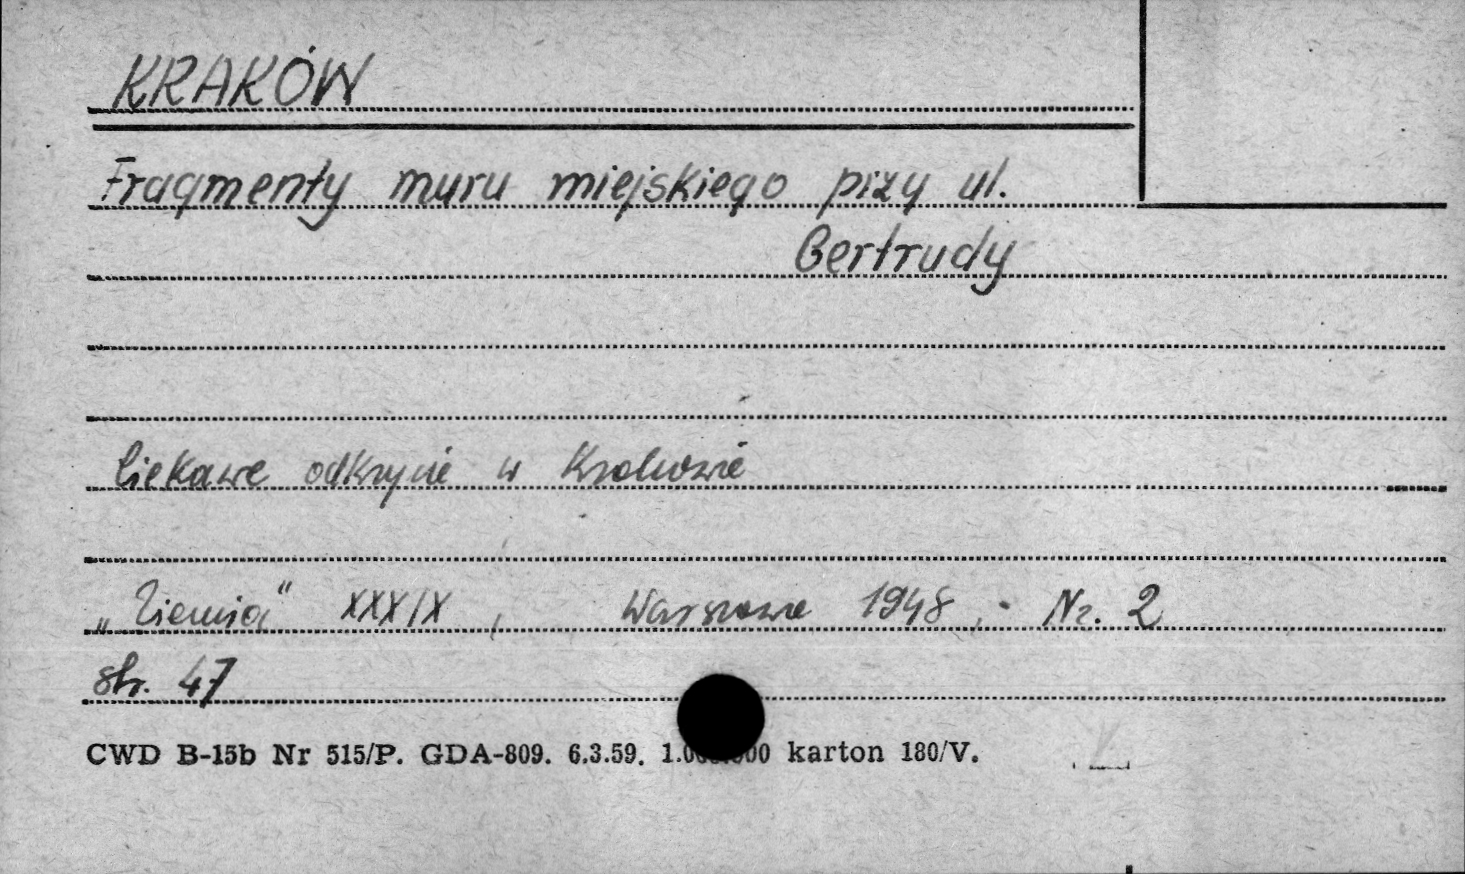 KRAKÓW
Fragmenty muru miejskiego przy ul.
Gertrudy
Ciekawe odkrycie w Krakowie
„Ziemia" XXXIX, Warszawa 1948, Nr. 2
str. 47
CWD B-15b Nr 515/P. GDA-809. 6.3.59. karton 180/V.